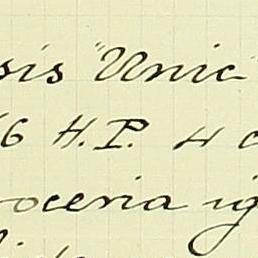 sis "Unic"
6 H.P. 4 c
oceria ig